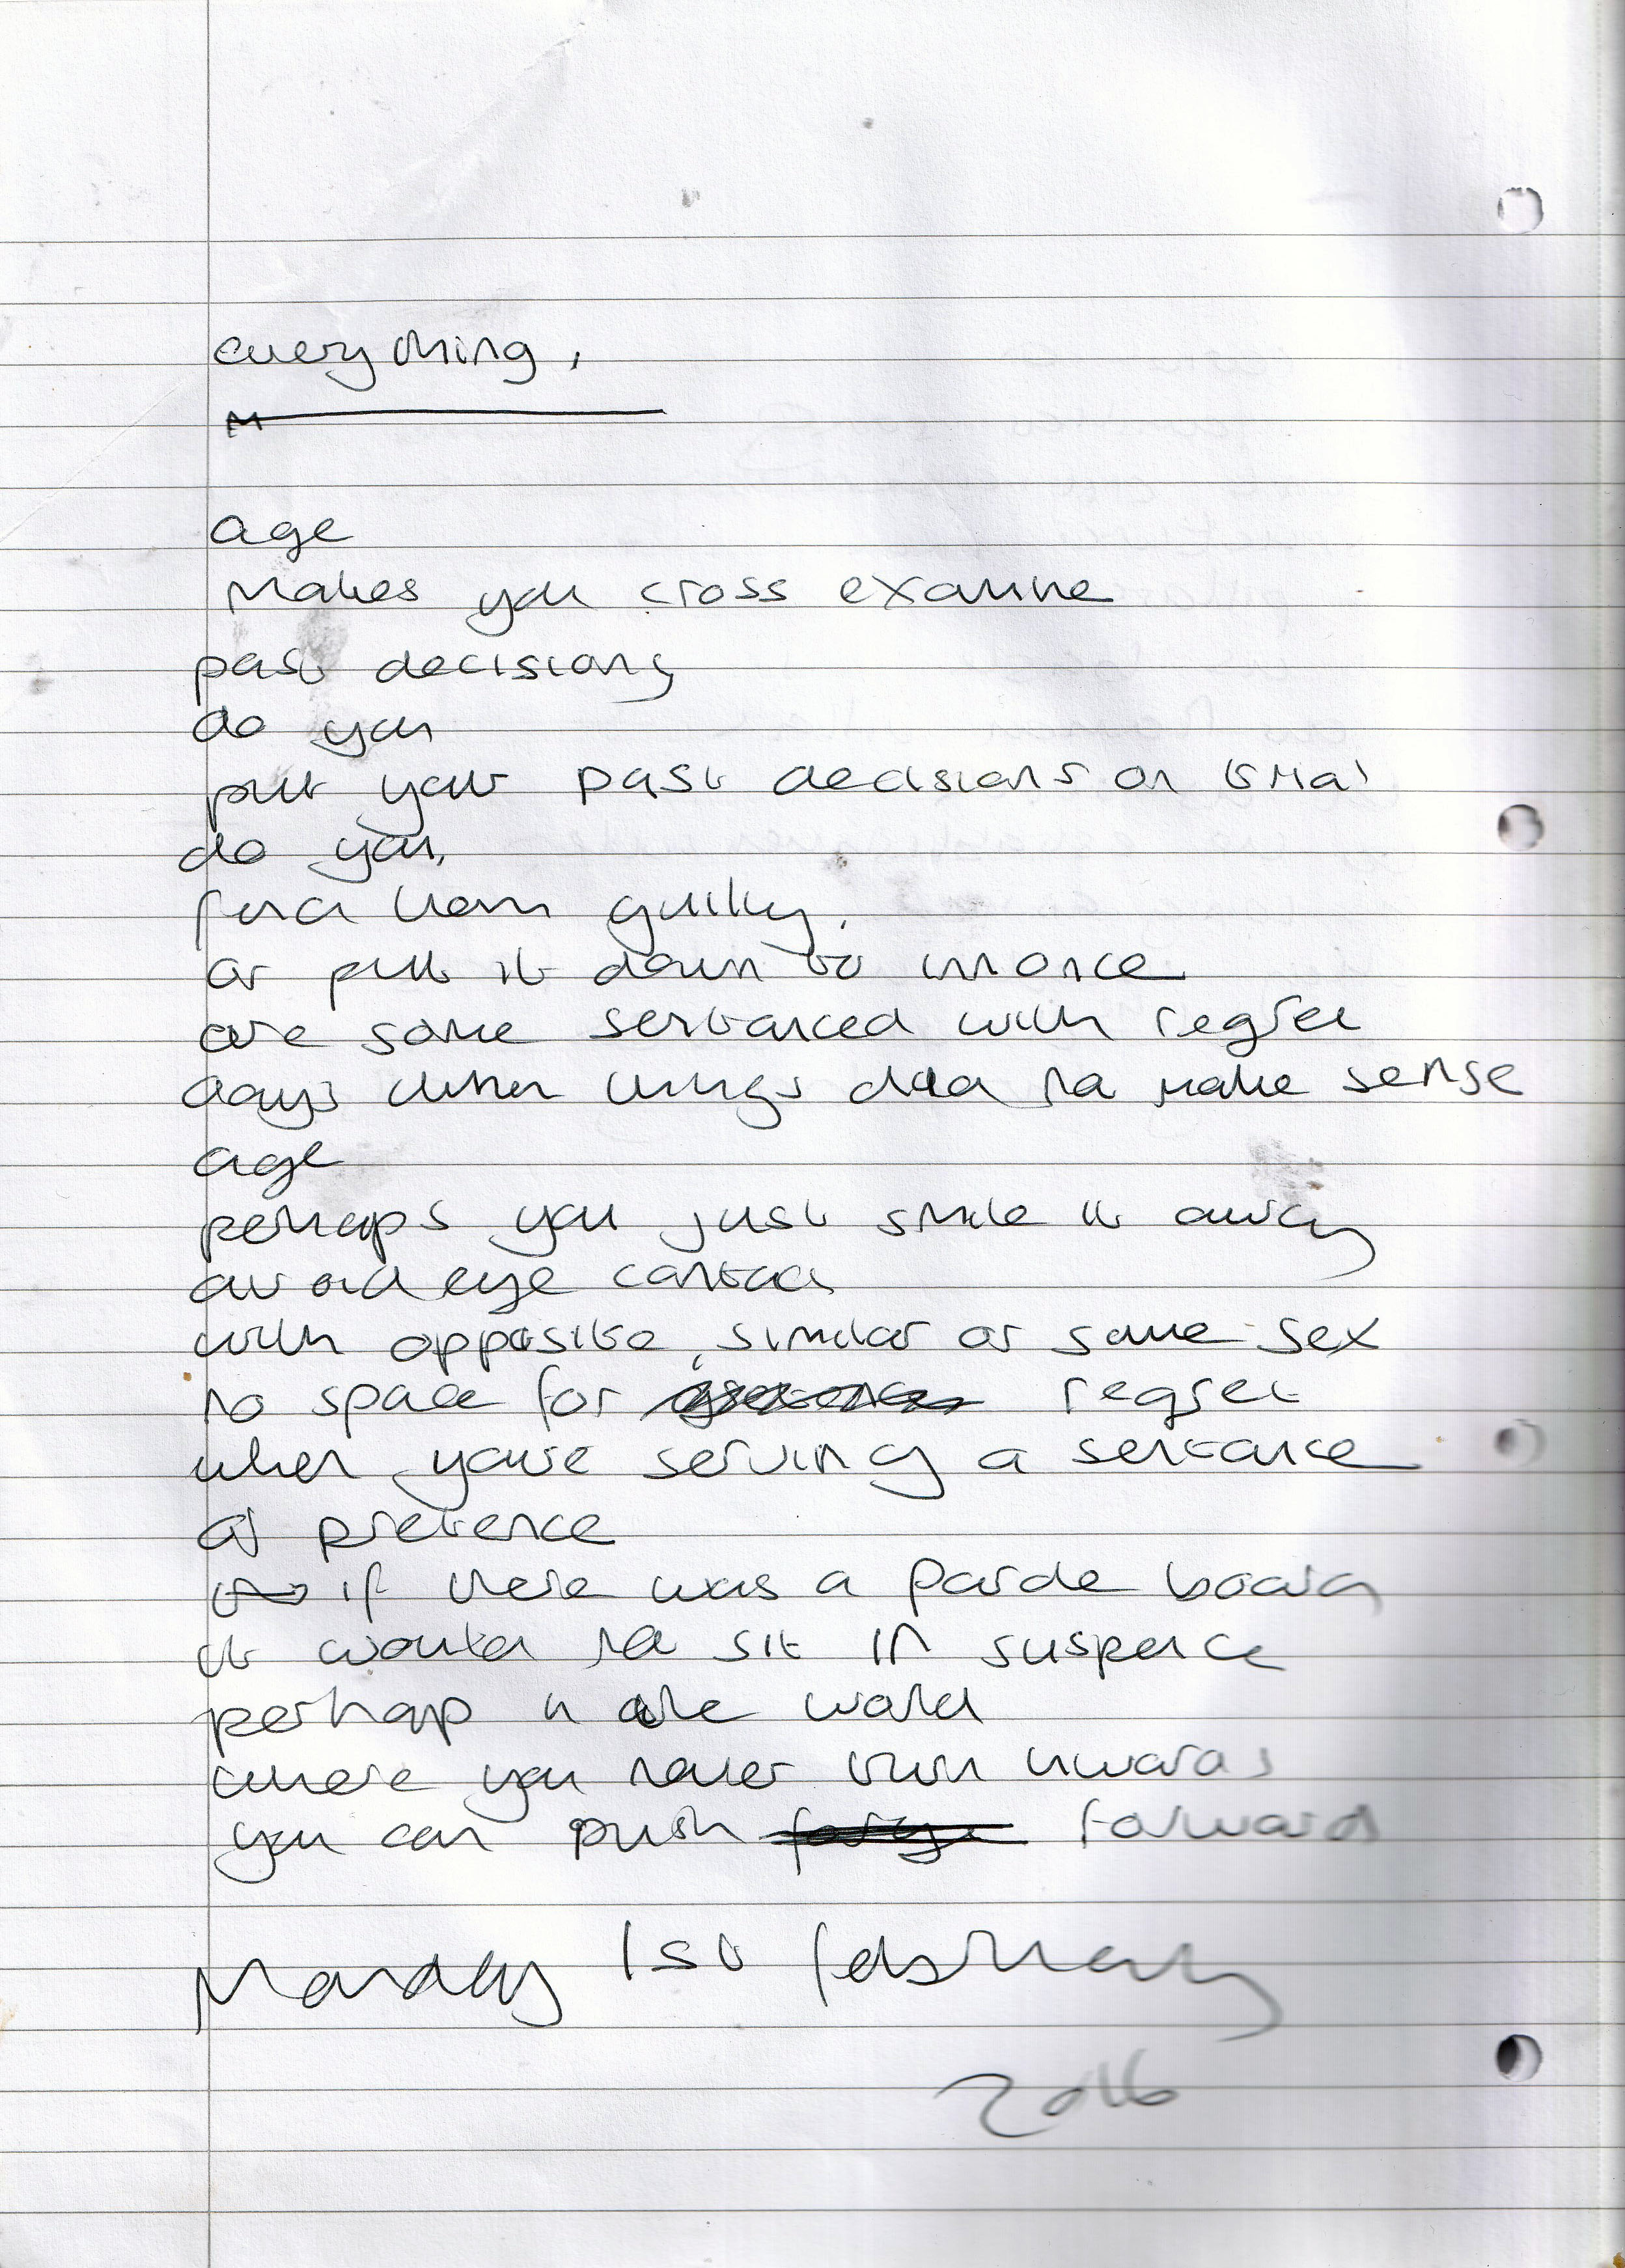 everything,
age
makes you cross examine
past decisions
do you
put your past decisions on trial
do you,
find them guilty.
or put it down to
are some sentanced with regret
days when things did na make sense
age
perhaps you just smile it away
avoid eye contact
with opposite, similar or same sex
no space for regret
when youre serving a sentance
of pretence
if there was a parole board
it would na sit in suspence
perhap in the world
where you never turn inwards
you can push forward
Monday 1st february
2016